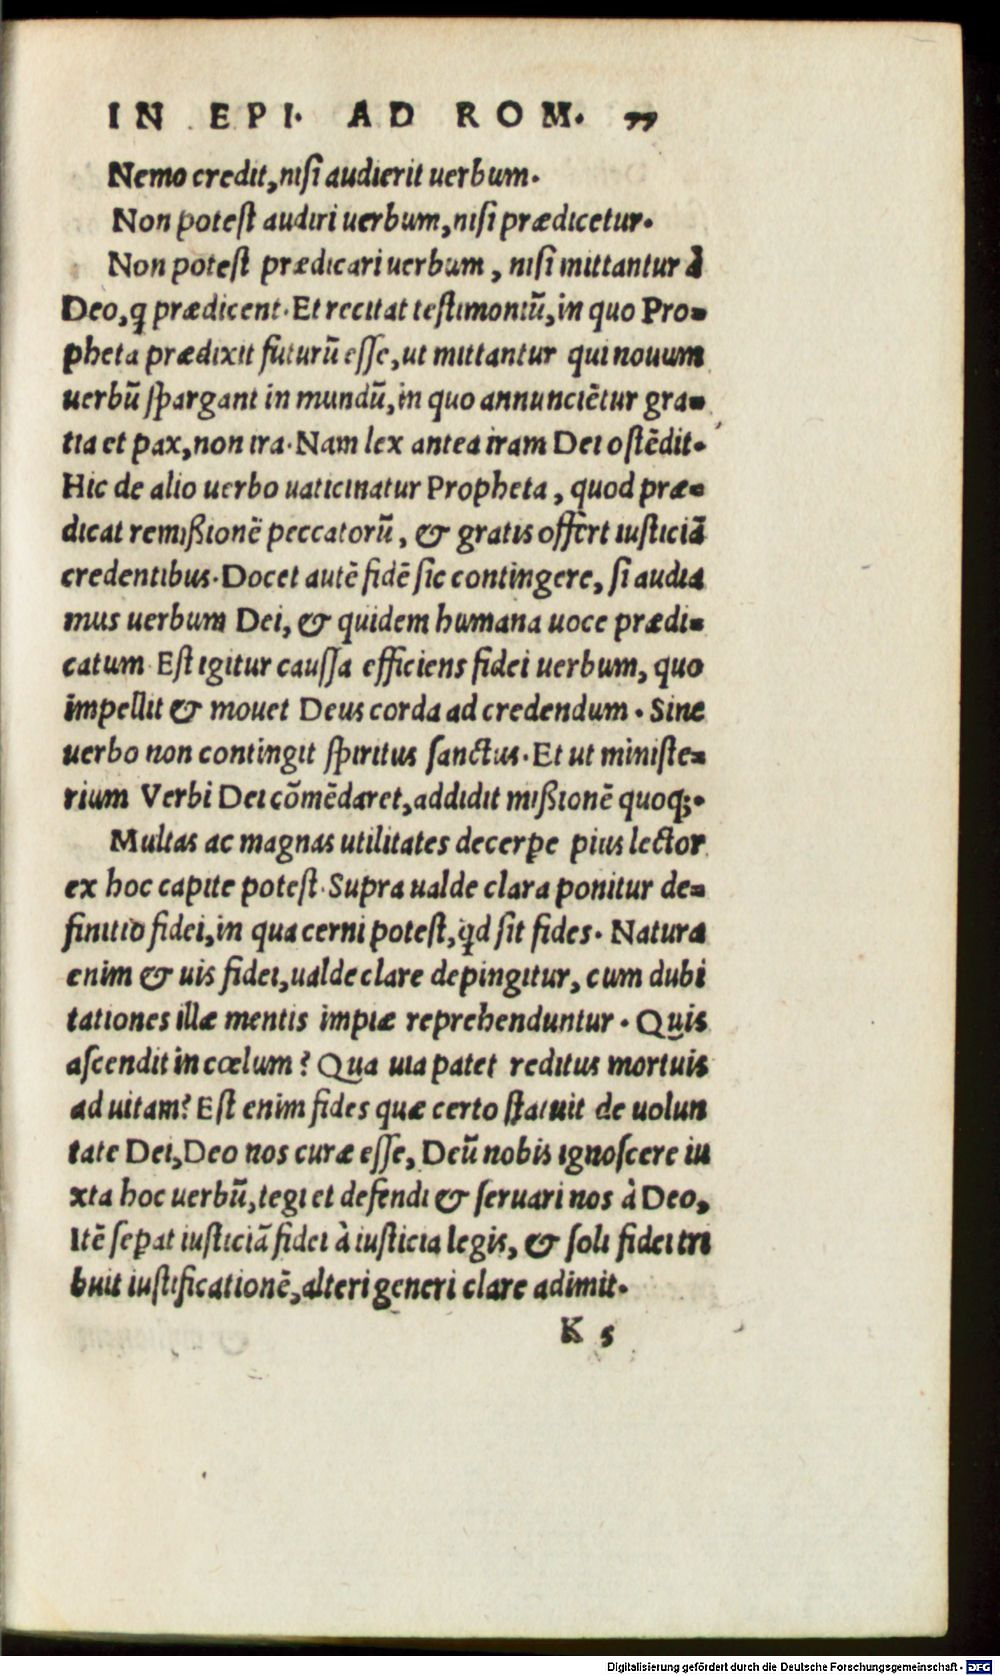 IN EPI. AD ROM. 77
Nemo credit, nisi audierit uerbum.
Non potest audiri uerbum, nisi prædicetur.
Non potest prædicari uerbum, nisi mittantur à
Deo, q prædicent. Et recitat testimoniũ, in quo Pro-
pheta prædixit futurũ esse, ut mittantur qui nouum
uerbũ spargant in mundũ, in quo annunciẽtur gra-
tia et pax, non ira. Nam lex antea iram Dei ostẽdit.
Hic de alio uerbo uaticinatur Propheta, quod præ-
dicat remißionẽ peccatorũ, & gratis offert iusticiã
credentibus. Docet autẽ fidẽ sic contingere, si audia
mus uerbum Dei, & quidem humana uoce prædi-
catum. Est igitur caussa efficiens fidei uerbum, quo
impellit & mouet Deus corda ad credendum. Sine
uerbo non contingit spiritus sanctus. Et ut ministe-
rium Verbi Dei cõmẽdaret, addidit mißionẽ quoq;.
Multas ac magnas utilitates decerpe pius lector
ex hoc capite potest. Supra ualde clara ponitur de-
finitio fidei, in qua cerni potest, qd sit fides. Natura
enim & uis fidei, ualde clare depingitur, cum dubi
tationes illæ mentis impiæ reprehenduntur. Quis
ascendit in cœlum? Qua uia patet reditus mortuis
ad uitam? Est enim fides quæ certo statuit de uolun
tate Dei, Deo nos curæ esse, Deũ nobis ignoscere iu
xta hoc uerbũ, tegi et defendi & seruari nos à Deo,
Itẽ sepat iusticiã fidei à iusticia legis, & soli fidei tri
buit iustificationẽ, alteri generi clare adimit.
K 5
Digitalisierung gefördert durch die Deutsche Forschungsgemeinschaft - DFG